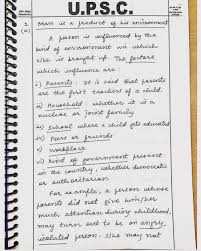 U.P.S.C.
1. Man is a product of his environment
(a)
A person is influenced by the
kind of environment in which
s/he is brought up. The factors
which influence are
i) Parents: It is said that parents
are the first teachers of a child.
ii) Household whether it is a
nuclear or joint family
iii) School where a child gets educated
iv) Peers or friends
v) Workplace
vi) Kind of government present
in the country, whether democratic
or authoritarian
For example, a person whose
parents did not give him/her
much attention during childhood
may turn out to be an angry,
isolated person. S/he may not